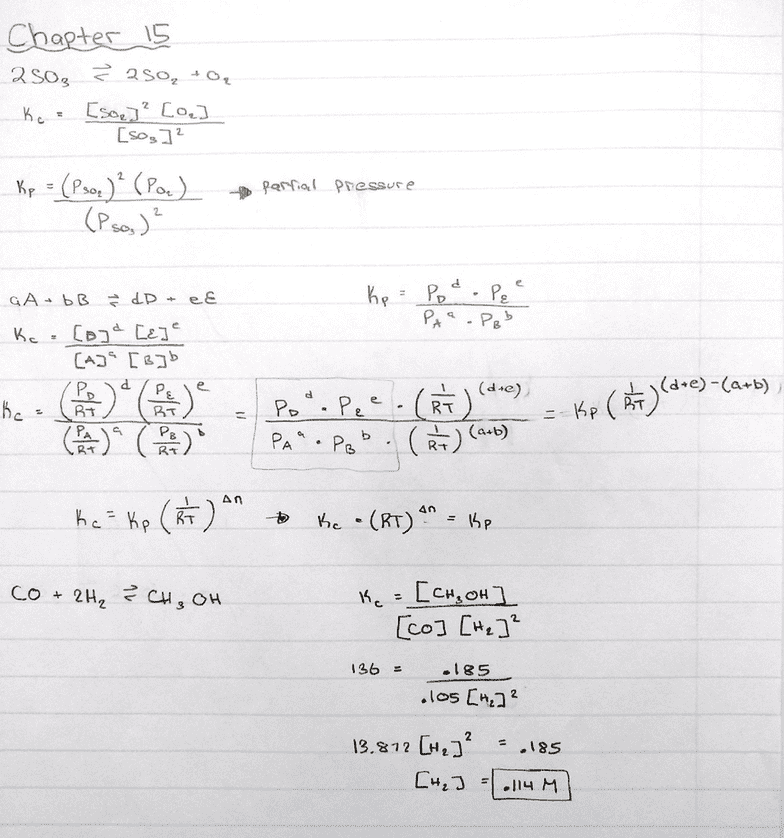 Chapter 15
2SO₃ ⇌ 2SO₂ + O₂
Kc = [SO₂]² [O₂] / [SO₃]²
Kp = (P_SO₂)² (P_O₂) / (P_SO₃)² → partial pressure
aA + bB ⇌ dD + eE
Kp = P_D^d · P_E^e / P_A^a · P_B^b
Kc = [D]^d [E]^e / [A]^a [B]^b
Kc = (P_D/RT)^d (P_E/RT)^e / (P_A/RT)^a (P_B/RT)^b = P_D^d · P_E^e · (1/RT)^(d+e) / P_A^a · P_B^b · (1/RT)^(a+b) = Kp (1/RT)^(d+e)-(a+b)
Kc = Kp (1/RT)^Δn → Kc · (RT)^Δn = Kp
CO + 2H₂ ⇌ CH₃OH
Kc = [CH₃OH] / [CO] [H₂]²
136 = .185 / .105 [H₂]²
13.872 [H₂]² = .185
[H₂] = .114 M